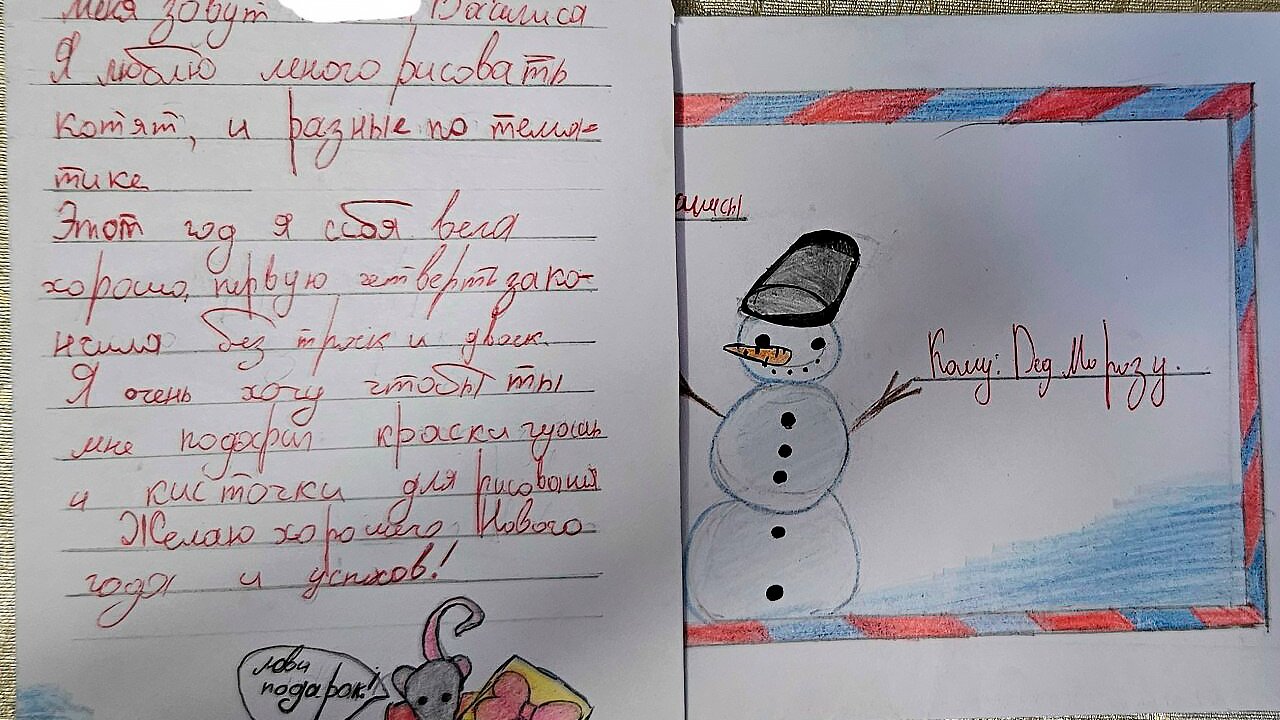 меня зовут Василиса
Я люблю много рисовать
котят, и разные по тема-
тике
Этот год я себя вела
хорошо, первую четверть зако-
нчила без троек и двоек.
Я очень хочу чтобы ты
мне подарил краски гуашь
и кисточки для рисования
Желаю хорошего Нового
года и успехов!
лови
подарок!
алисы
Кому: Дед Морозу.